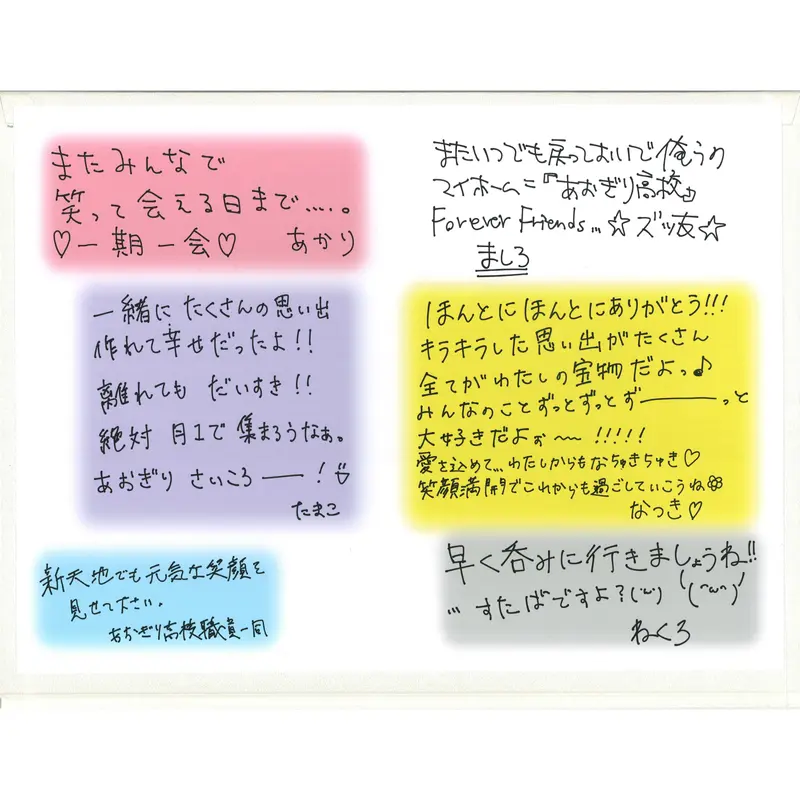 またみんなで
笑って会える日まで.....。
♡一期一会♡ あかり
またいつでも戻っておいで俺らの
マイホーム=『あおぎり高校』
Forever Friends...☆ズッ友☆
ましろ
一緒に たくさんの思い出
作れて幸せだったよ!!
離れても だいすき!!
絶対 月1で 集まろうなぁ。
あおぎり さいころ――!
たまこ
ほんとにほんとにありがとう!!!
キラキラした思い出がたくさん
全てがわたしの宝物だよっ♪
みんなのことずっとずっとず―――っと
大好きだよぉ〜〜!!!!!
愛を込めて...わたしからもなちゅきちゅき♡
笑顔満開でこれからも過ごしていこうね
なつき♡
新天地でも元気な笑顔を
見せて下さい。
あおぎり高校職員一同
早く呑みに行きましょうね!!
...すたばですよ?('ω') '(^ω^)'
ねくろ